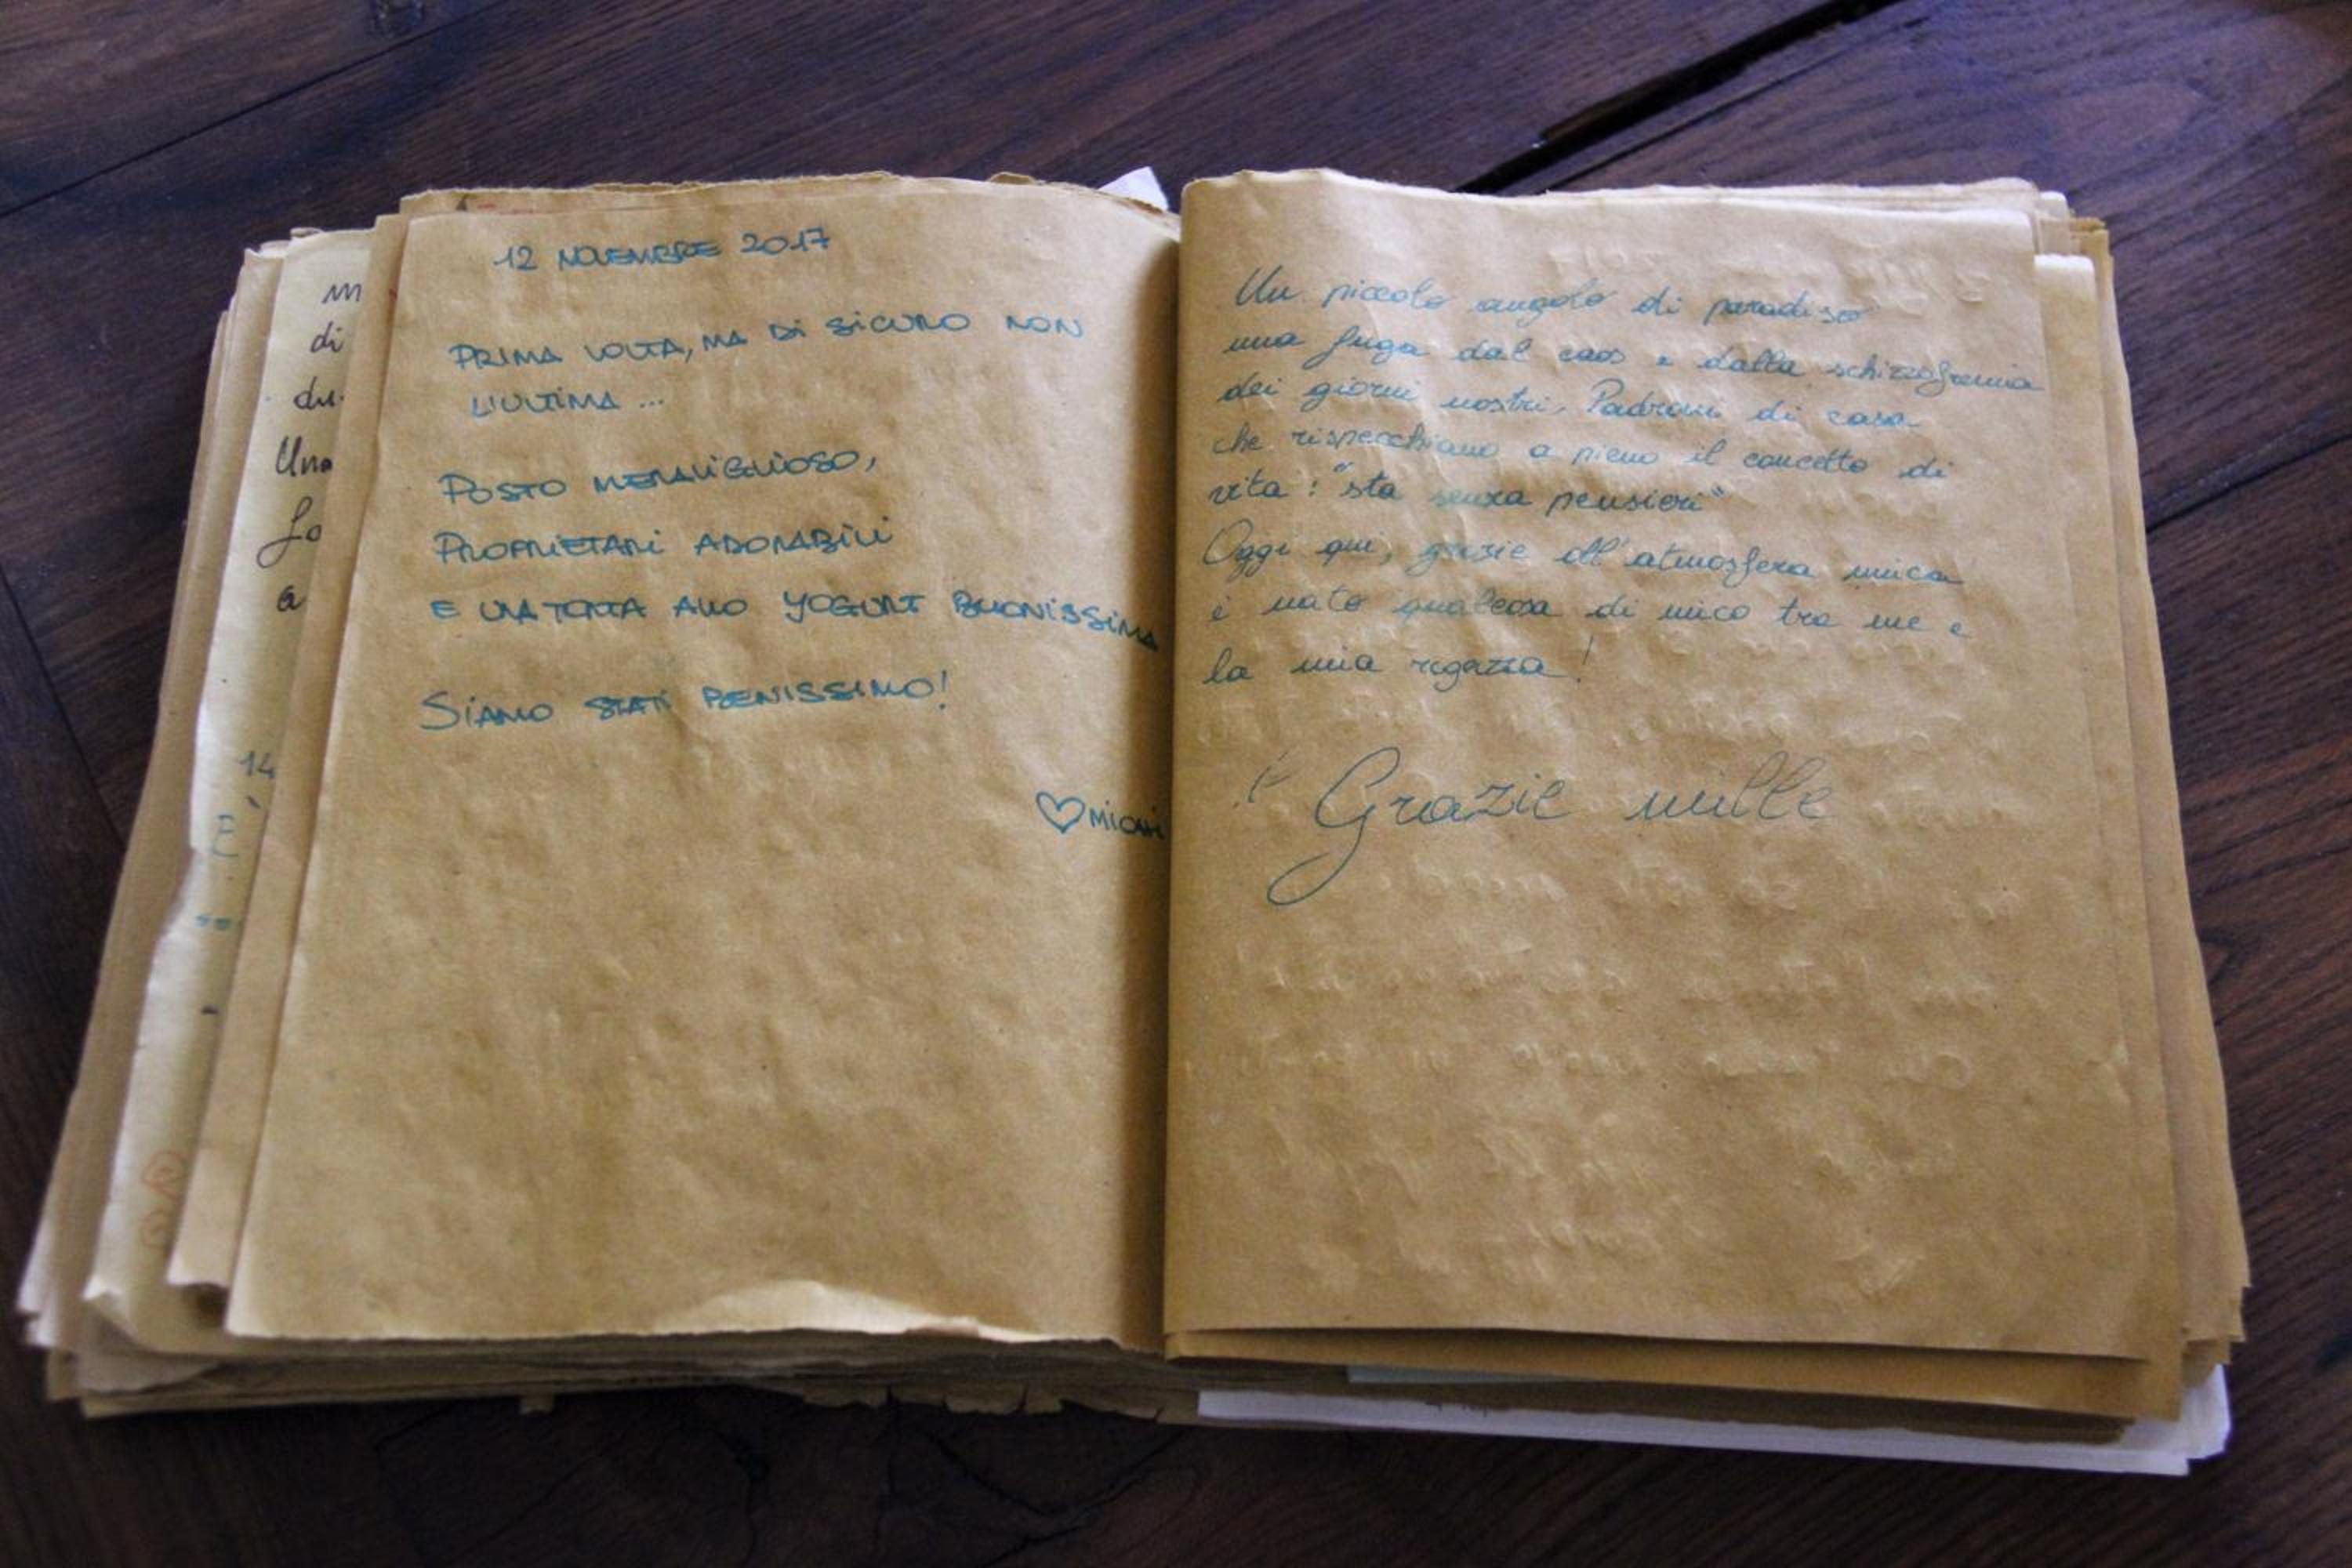 12 NOVEMBRE 2017
PRIMA VOLTA, MA Di SiCURO NON
L'ULTiMA ...
POSTO MERAViGLiOSO,
PROPRiETARi ADORABiLi
E UNA TORTA ALLO YOGURT BUONiSSiMA
SiAMO STATi BENISSIMO!
♡MiCHi
m
di
du
Una
fo
a
14
E'
Un piccolo angolo di paradiso
una fuga dal caos e dalla schizzofrenia
dei giorni nostri. Padroni di casa
che rispecchiano a pieno il concetto di
vita: "sta senza pensieri"
Oggi qui, grazie all'atmosfera unica
è nato qualcosa di unico tra me e
la mia ragazza!
Grazie mille